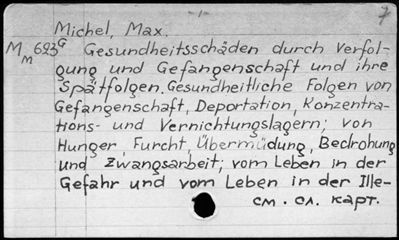 -1-
7
Michel, Max.
M 623 G Gesundheitsschäden durch Verfol-
m gung und Gefangenschaft und ihre
Spätfolgen. Gesundheitliche Folgen von
Gefangenschaft, Deportation, Konzentra-
tions- und Vernichtungslagern; von
Hunger, Furcht, Übermüdung, Bedrohung
und Zwangsarbeit; vom Leben in der
Gefahr und vom Leben in der Ille-
см. сл. карт.